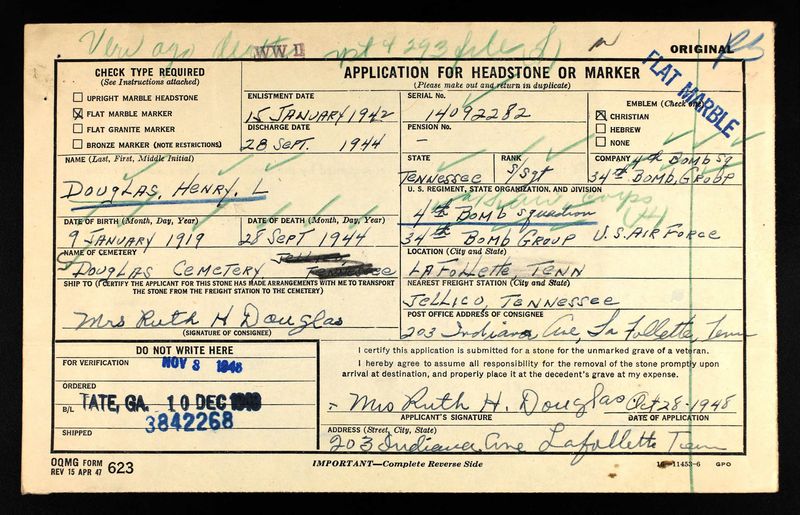 WW II
293 file
ORIGINAL
FLAT MARBLE
CHECK TYPE REQUIRED
(See Instructions attached)
☐ UPRIGHT MARBLE HEADSTONE
☒ FLAT MARBLE MARKER
☐ FLAT GRANITE MARKER
☐ BRONZE MARKER (NOTE RESTRICTIONS)
APPLICATION FOR HEADSTONE OR MARKER
(Please make out and return in duplicate)
ENLISTMENT DATE
15 JANUARY 1942
DISCHARGE DATE
28 SEPT. 1944
SERIAL No.
14092282
PENSION No.
–
EMBLEM (Check one)
☒ CHRISTIAN
☐ HEBREW
☐ NONE
NAME (Last, First, Middle Initial)
DOUGLAS, HENRY, L
STATE
TENNESSEE
RANK
S/Sgt
COMPANY 4th BOMB Sq
34th BOMB, GROUP
U. S. REGIMENT, STATE ORGANIZATION, AND DIVISION
4th BOMB Squadron
34th BOMB GROUP U.S. AIR FORCE
DATE OF BIRTH (Month, Day, Year)
9 JANUARY 1919
DATE OF DEATH (Month, Day, Year)
28 SEPT 1944
NAME OF CEMETERY
DOUGLAS CEMETERY
LOCATION (City and State)
LAFOLLETTE TENN
SHIP TO (I CERTIFY THE APPLICANT FOR THIS STONE HAS MADE ARRANGEMENTS WITH ME TO TRANSPORT
THE STONE FROM THE FREIGHT STATION TO THE CEMETERY)
Mrs Ruth H Douglas
(SIGNATURE OF CONSIGNEE)
NEAREST FREIGHT STATION (City and State)
JELLICO, TENNESSEE
POST OFFICE ADDRESS OF CONSIGNEE
203 Indiana Ave, La Follette, Tenn
DO NOT WRITE HERE
FOR VERIFICATION
NOV 3 1948
ORDERED
B/L TATE, GA. 10 DEC 1948
3842268
SHIPPED
I certify this application is submitted for a stone for the unmarked grave of a veteran.
I hereby agree to assume all responsibility for the removal of the stone promptly upon
arrival at destination, and properly place it at the decedent's grave at my expense.
Mrs Ruth H. Douglas Oct 28-1948
APPLICANT'S SIGNATURE DATE OF APPLICATION
ADDRESS (Street, City, State)
203 Indiana Ave Lafollette Tenn
OQMG FORM
REV 15 APR 47 623
IMPORTANT—Complete Reverse Side
16—11453-6 GPO